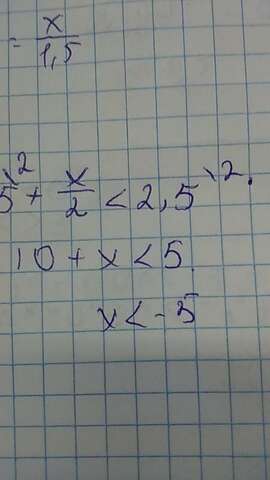 = x/1,5
5^{\2} + x/2 < 2,5^{\2}.
10 + x < 5
x < -5